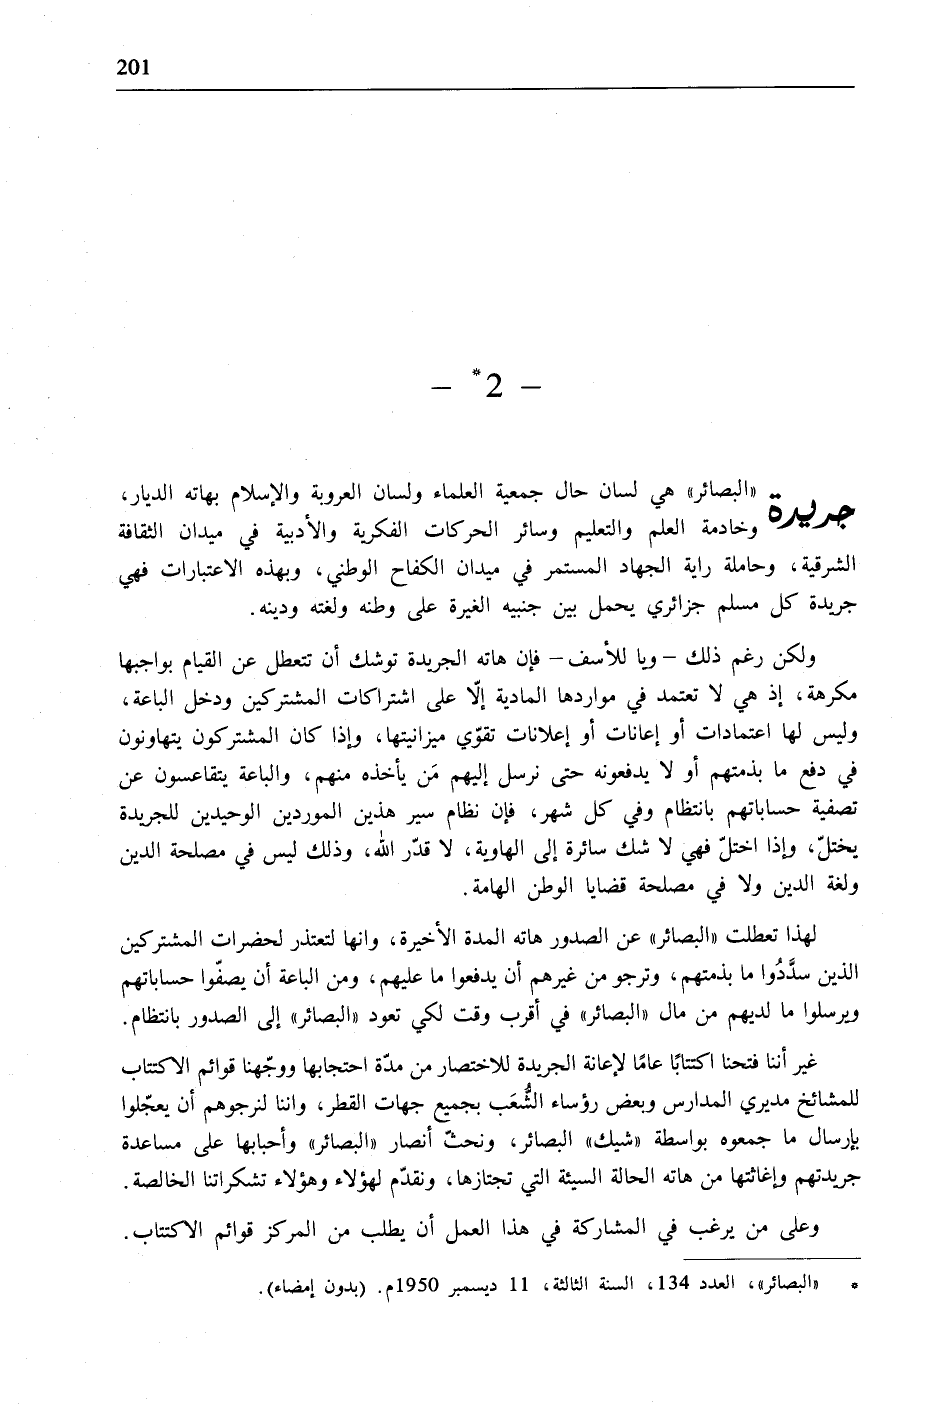 201
– 2* –
جريدة «البصائر» هي لسان حال جمعية العلماء ولسان العروبة والإسلام بهاته الديار،
وخادمة العلم والتعليم وسائر الحركات الفكرية والأدبية في ميدان الثقافة
الشرقية، وحاملة راية الجهاد المستمر في ميدان الكفاح الوطني، وبهذه الاعتبارات فهي
جريدة كل مسلم جزائري يحمل بين جنبيه الغيرة على وطنه ولغته ودينه.
ولكن رغم ذلك – ويا للأسف – فإن هاته الجريدة توشك أن تتعطل عن القيام بواجبها
مكرهة، إذ هي لا تعتمد في مواردها المادية إلّا على اشتراكات المشتركين ودخل الباعة،
وليس لها اعتمادات أو إعانات أو إعلانات تقوّي ميزانيتها، وإذا كان المشتركون يتهاونون
في دفع ما بذمتهم أو لا يدفعونه حتى نرسل إليهم مَن يأخذه منهم، والباعة يتقاعسون عن
تصفية حساباتهم بانتظام وفي كل شهر، فإن نظام سير هذين الموردين الوحيدين للجريدة
يختلّ، وإذا اختلّ فهي لا شك سائرة إلى الهاوية، لا قدّر الله، وذلك ليس في مصلحة الدين
ولغة الدين ولا في مصلحة قضايا الوطن الهامة.
لهذا تعطلت «البصائر» عن الصدور هاته المدة الأخيرة، وانها لتعتذر لحضرات المشتركين
الذين سدَّدُوا ما بذمتهم، وترجو من غيرهم أن يدفعوا ما عليهم، ومن الباعة أن يصفّوا حساباتهم
ويرسلوا ما لديهم من مال «البصائر» في أقرب وقت لكي تعود «البصائر» إلى الصدور بانتظام.
غير أننا فتحنا اكتتابًا عامًا لإعانة الجريدة للاختصار من مدّة احتجابها ووجّهنا قوائم الاكتتاب
للمشائخ مديري المدارس وبعض رؤساء الشُّعَب بجميع جهات القطر، واننا لنرجوهم أن يعجّلوا
بإرسال ما جمعوه بواسطة «شيك» البصائر، ونحثّ أنصار «البصائر» وأحبابها على مساعدة
جريدتهم وإغاثتها من هاته الحالة السيئة التي تجتازها، ونقدّم لهؤلاء وهؤلاء تشكراتنا الخالصة.
وعلى من يرغب في المشاركة في هذا العمل أن يطلب من المركز قوائم الاكتتاب.
* «البصائر»، العدد 134، السنة الثالثة، 11 ديسمبر 1950م. (بدون إمضاء).